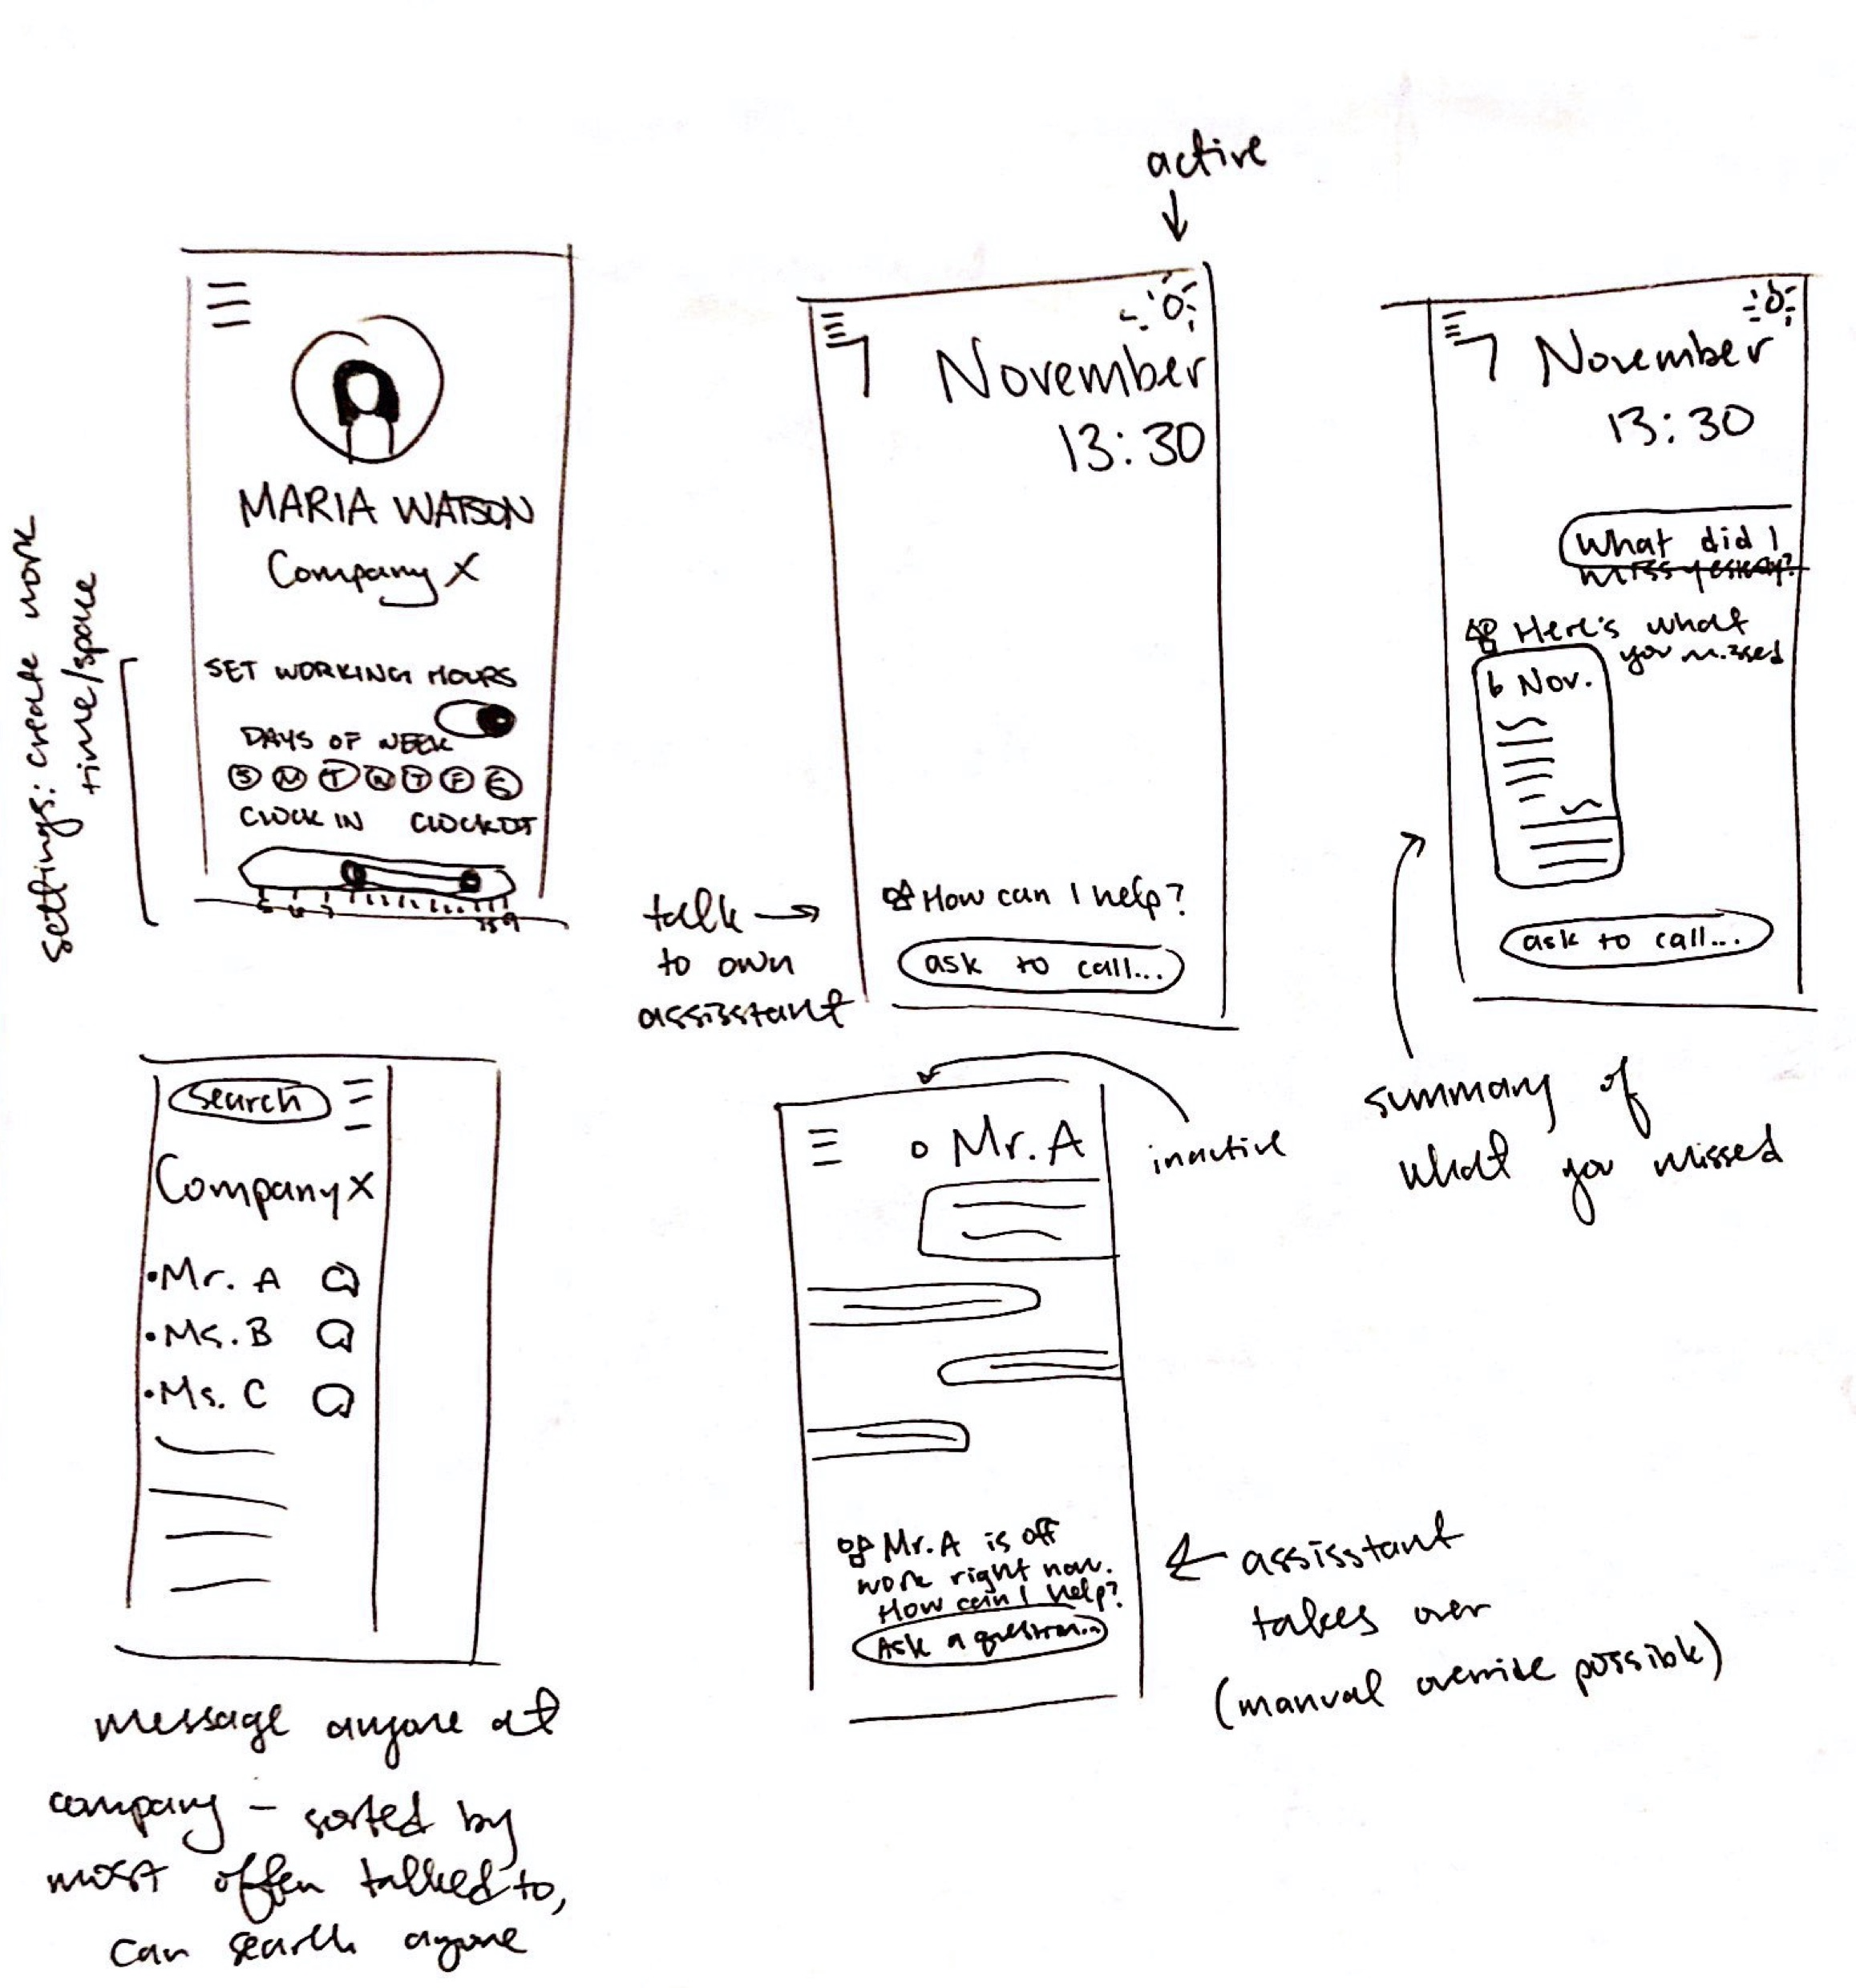 active
settings: create work
time/space
MARIA WATSON
Company X
SET WORKING HOURS
DAYS OF WEEK
S M T W T F S
CLOCK IN CLOCK OUT
7 November
13:30
talk
to own
assisstant
How can I help?
ask to call...
7 November
13:30
What did I
miss yesterday?
Here's what
you missed
6 Nov.
ask to call...
summary of
what you missed
search
Company X
•Mr. A
•Ms. B
•Ms. C
message anyone at
company – sorted by
most often talked to,
can search anyone
inactive
Mr. A
Mr. A is off
work right now.
How can I help?
Ask a question...
assisstant
takes over
(manual override possible)